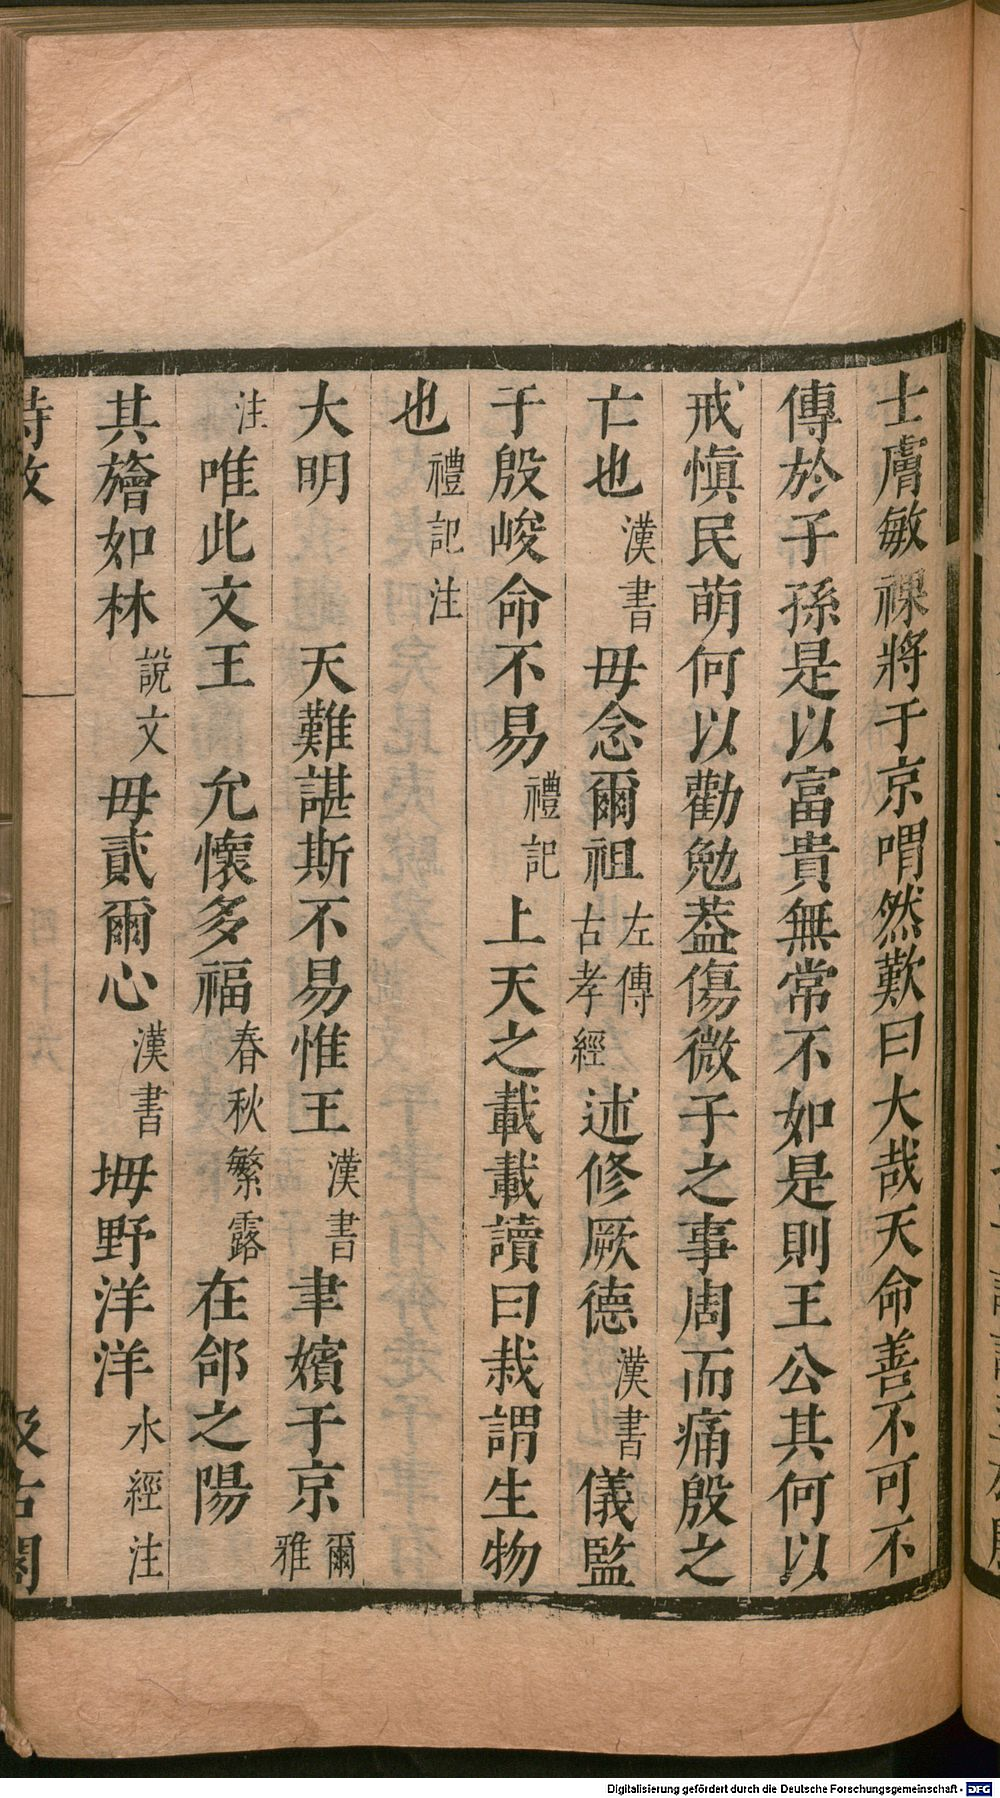 士膚敏祼將于京喟然歎曰大哉天命善不可不
傳於子孫是以富貴無常不如是則王公其何以
戒慎民萌何以勸勉葢傷微子之事周而痛殷之
亡也漢書毋念爾祖左傳古孝經述修厥德漢書儀監
于殷峻命不易禮記上天之載載讀曰栽謂生物
也禮記注
大明 天難諶斯不易惟王漢書聿嬪于京爾雅
注唯此文王 允懷多福春秋繁露在郃之陽
其旝如林說文毋貳爾心漢書坶野洋洋水經注
詩攷 汲古閣
Digitalisierung gefördert durch die Deutsche Forschungsgemeinschaft - DFG